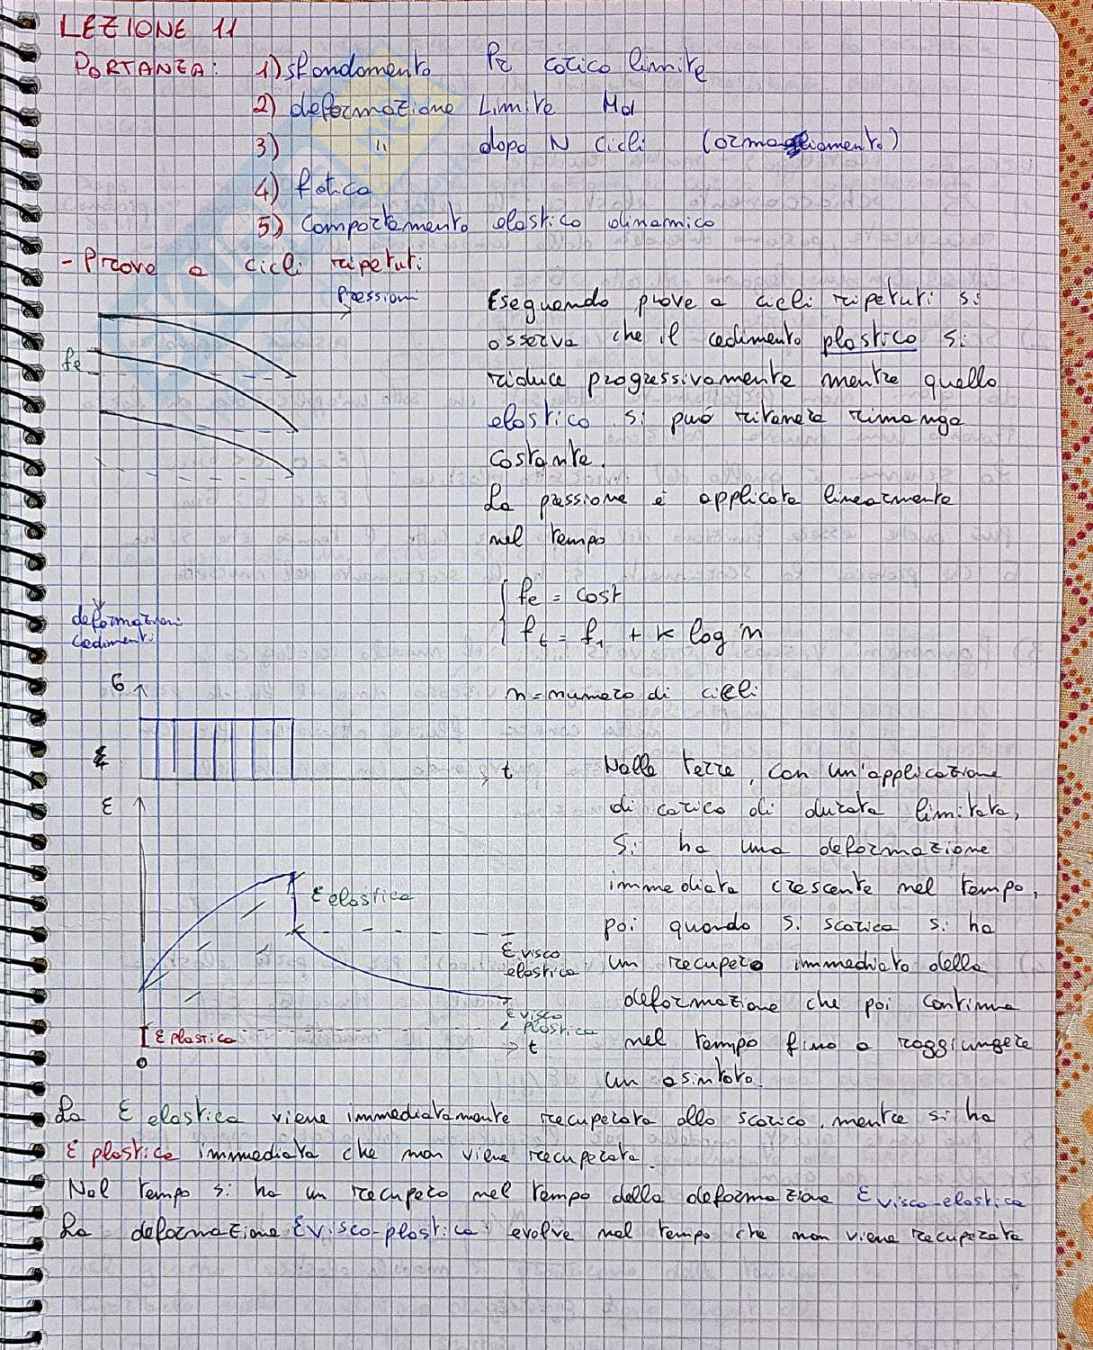 LEZIONE 11
PORTANZA: 1) sfondamento Pr carico limite
2) deformazione Limite Md
3) " dopo N cicli (ormagliamento)
4) fatica
5) Comportamento elastico dinamico
- Prove a cicli ripetuti
Pressioni
fe
deformazioni
cedimenti
Eseguendo prove a cicli ripetuti si
osserva che il cedimento plastico si
riduce progressivamente mentre quello
elastico si può ritenere rimanga
costante.
La pressione è applicata linearmente
nel tempo
fe = cost
ft = f1 + k log n
n = numero di cicli
σ
t
ε
ε elastica
ε visco
elastica
ε visco
plastica
ε plastica
t
0
Nelle terre, con un'applicazione
di carico di durata limitata,
si ha una deformazione
immediata crescente nel tempo,
poi quando si scarica si ha
un recupero immediato della
deformazione che poi continua
nel tempo fino a raggiungere
un asintoto.
La ε elastica viene immediatamente recuperata allo scarico, mentre si ha
ε plastica immediata che non viene recuperata.
Nel tempo si ha un recupero nel tempo della deformazione ε visco-elastica
La deformazione ε visco-plastica evolve nel tempo che non viene recuperata